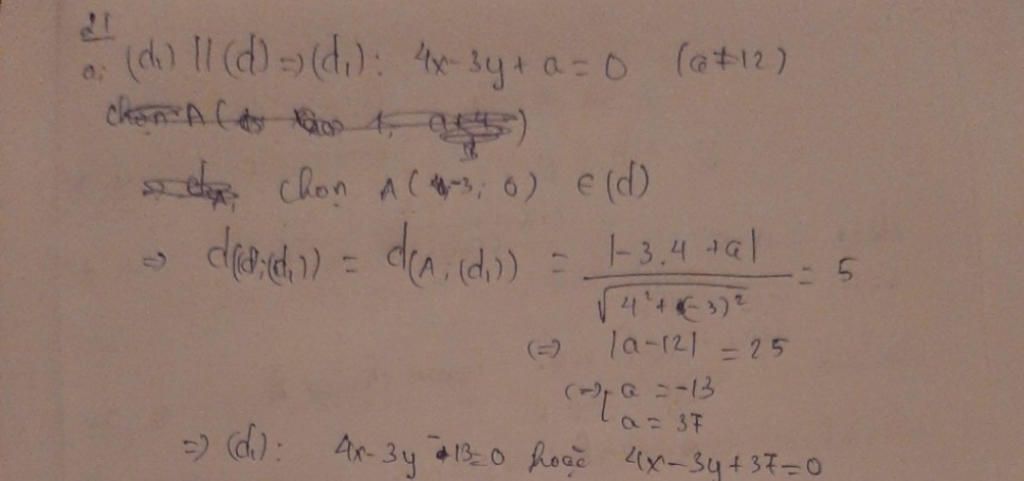 21
a; (d₁) || (d) => (d₁): 4x-3y + a = 0 (a ≠ 12)
chọn A(-3; 0) ∈ (d)
=> d((d);(d₁)) = d(A;(d₁)) = |-3.4 + a| / √(4² + (-3)²) = 5
(=) |a-12| = 25
(=) [ a = -13
a = 37
=> (d₁): 4x-3y - 13=0 hoặc 4x-3y+37=0